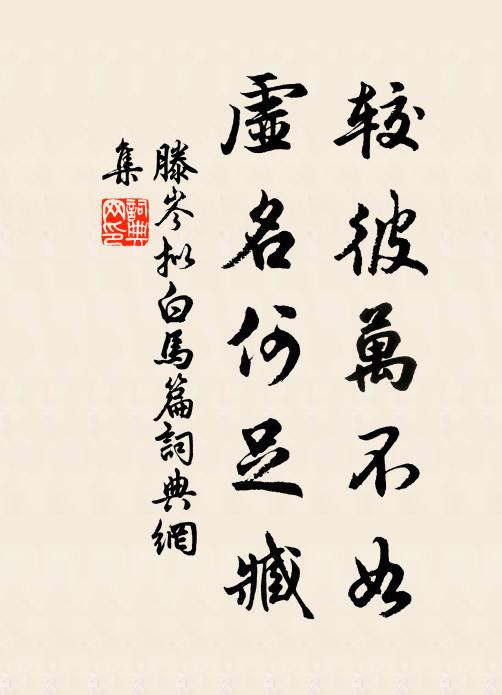 較彼萬不如
虛名何足臧
滕岑拟白馬篇詞典網
集
詞典网印